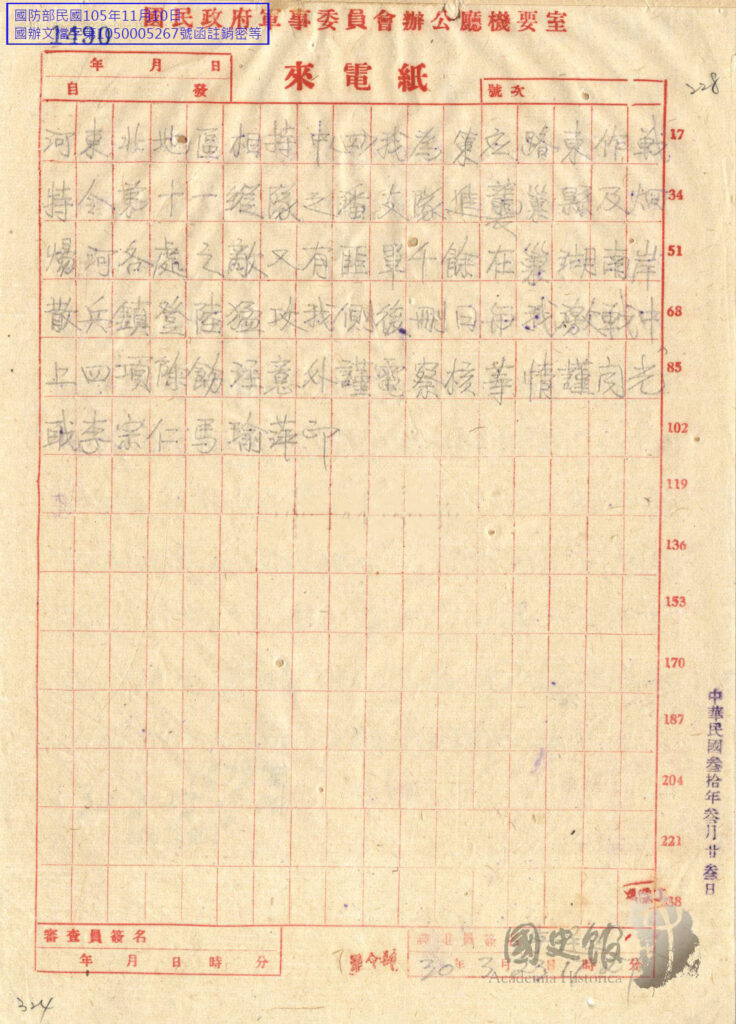 國防部民國105年11月10日
國辦文檔字第1050005267號函註銷密等
國民政府軍事委員會辦公廳機要室
1490
年 月 日
自 發
來電紙
號次
328
河東北地區相持中四我為策應路東作戰 17
特令第十縱隊之潘支隊進襲巢縣及烟 34
煬河各處之敵又有匪軍千餘在巢湖南岸 51
散兵鎮登陸猛攻我側後刪日與我激戰中 68
上四項除飭注意外謹電察核等情謹聞 85
李宗仁 印 102
119
136
153
170
187
204
221
238
中華民國叁拾年叁月廿叁日
審查員簽名
年 月 日 時 分
譯電員簽名
30年3月 日 時 分
國史館
Academia Historica
324